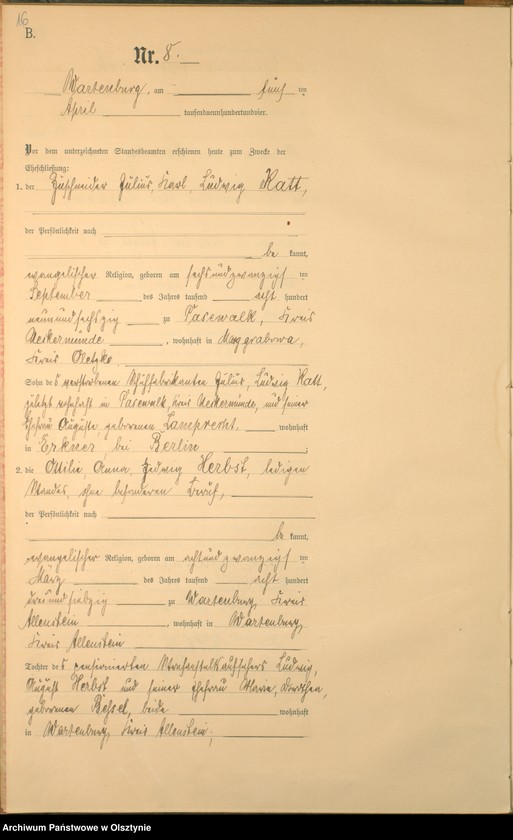 16
B.
Nr. 8.
Wartenburg, am fünf ten
April tausendneunhundertundvier.
Vor dem unterzeichneten Standesbeamten erschienen heute zum Zwecke der
Eheschließung:
1. der Zuschneider Julius, Karl, Ludwig Katt,
der Persönlichkeit nach
be kannt,
evangelischer Religion, geboren am sechsundzwanzigs ten
September des Jahres tausend acht hundert
neunundsechzig zu Pasewalk, Kreis
Ueckermünde, wohnhaft in Marggrabowa,
Kreis Oletzko
Sohn des verstorbenen Julius, Ludwig Katt,
zuletzt wohnhaft in Pasewalk, Kreis Ueckermünde, und seiner
Ehefrau Auguste geborenen Lamprecht, wohnhaft
in Erkner, bei Berlin
2. die Ottilie, Anna, Hedwig Herbst, ledigen
Standes, ohne besonderen Beruf,
der Persönlichkeit nach
be kannt,
evangelischer Religion, geboren am achtundzwanzigs ten
März des Jahres tausend acht hundert
dreiundsiebzig zu Wartenburg, Kreis
Allenstein, wohnhaft in Wartenburg,
Kreis Allenstein
Tochter des pensionierten Strafanstaltsaufsehers Ludwig,
August Herbst und seiner Ehefrau Marie, Dorothea,
geborenen beide wohnhaft
in Wartenburg, Kreis Allenstein;
Archiwum Państwowe w Olsztynie